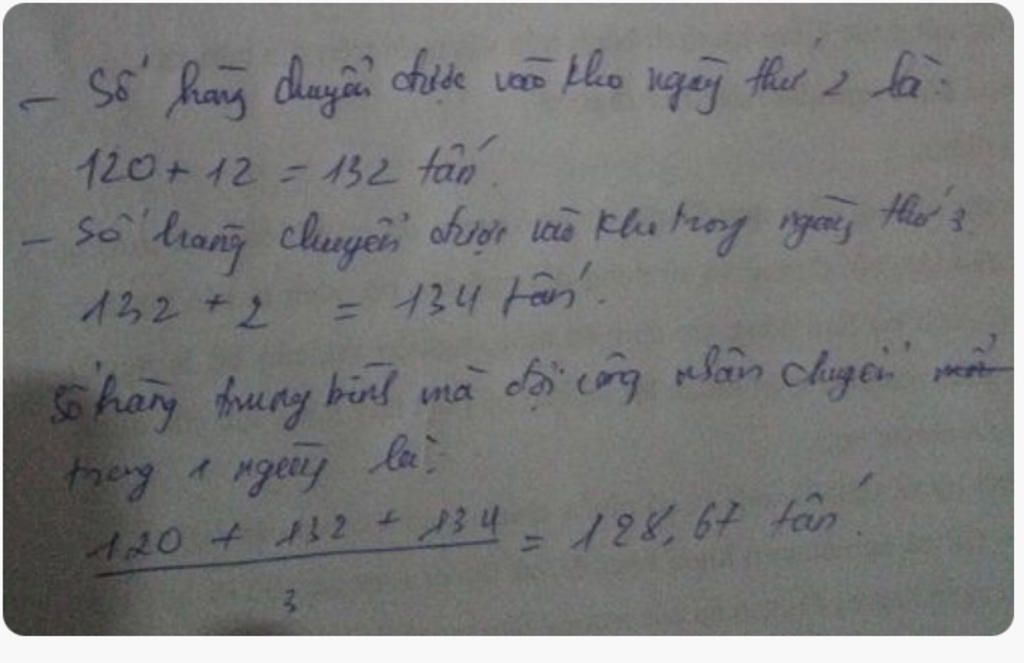 - Số hàng chuyển được vào kho ngày thứ 2 là:
120 + 12 = 132 tấn.
- Số hàng chuyển được vào kho trong ngày thứ 3
132 + 2 = 134 tấn.
Số hàng trung bình mà đội công nhân chuyển
trong 1 ngày là:
120 + 132 + 134 = 128,67 tấn.
3